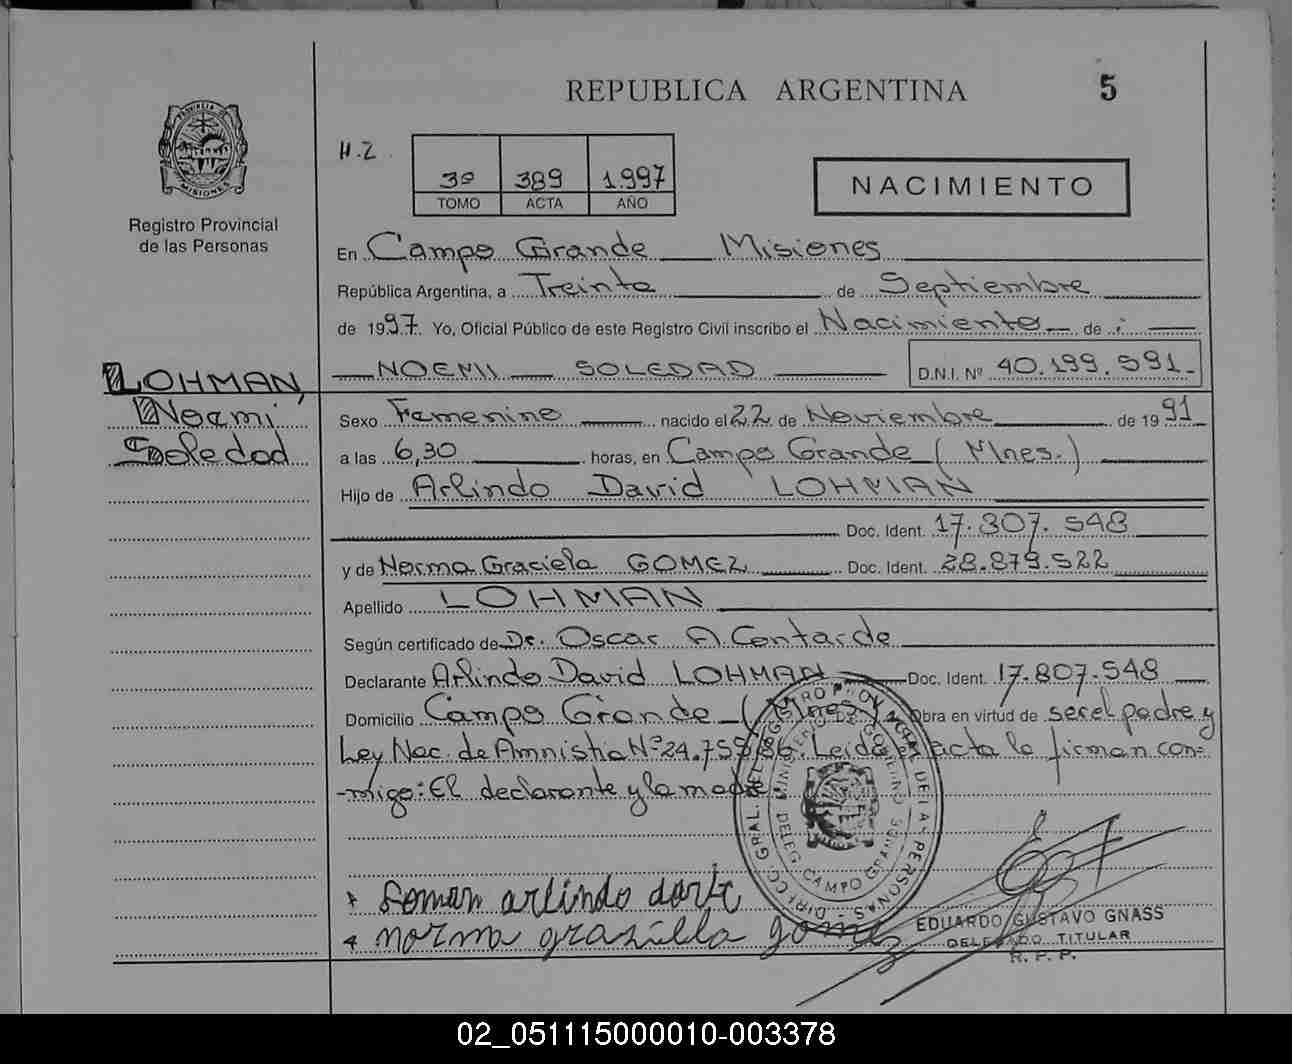 REPUBLICA ARGENTINA
5
PROVINCIA
MISIONES
Registro Provincial
de las Personas
H.2
3º 389 1.997
TOMO ACTA AÑO
NACIMIENTO
En Campo Grande Misiones
República Argentina, a Treinta de Septiembre
de 1997. Yo, Oficial Público de este Registro Civil inscribo el Nacimiento de :
NOEMI SOLEDAD D.N.I. Nº 40.199.591.-
LOHMAN,
Noemi
Soledad
Sexo Femenino nacido el 22 de Noviembre de 1991
a las 6,30 horas, en Campo Grande (Mnes.)
Hijo de Arlindo David LOHMAN
Doc. Ident. 17.807.548
y de Norma Graciela GOMEZ Doc. Ident. 28.879.522
Apellido LOHMAN
Según certificado de Dr. Oscar A. Contarde
Declarante Arlindo David LOHMAN Doc. Ident. 17.807.548
Domicilio Campo Grande (Mnes.) Obra en virtud de ser el padre y
Ley Nac. de Amnistia Nº 24.755/96. Leida el acta la firman con=
-migo: El declarante y la madre.
DIRECC. GRAL. DEL REGISTRO PROVINCIAL DE LAS PERSONAS -
MINISTERIO DE GOBIERNO
DELEG. CAMPO GRANDE
arlindo
norma grasilla gomez
EDUARDO GUSTAVO GNASS
DELEGADO TITULAR
R. P. P.
02_051115000010-003378